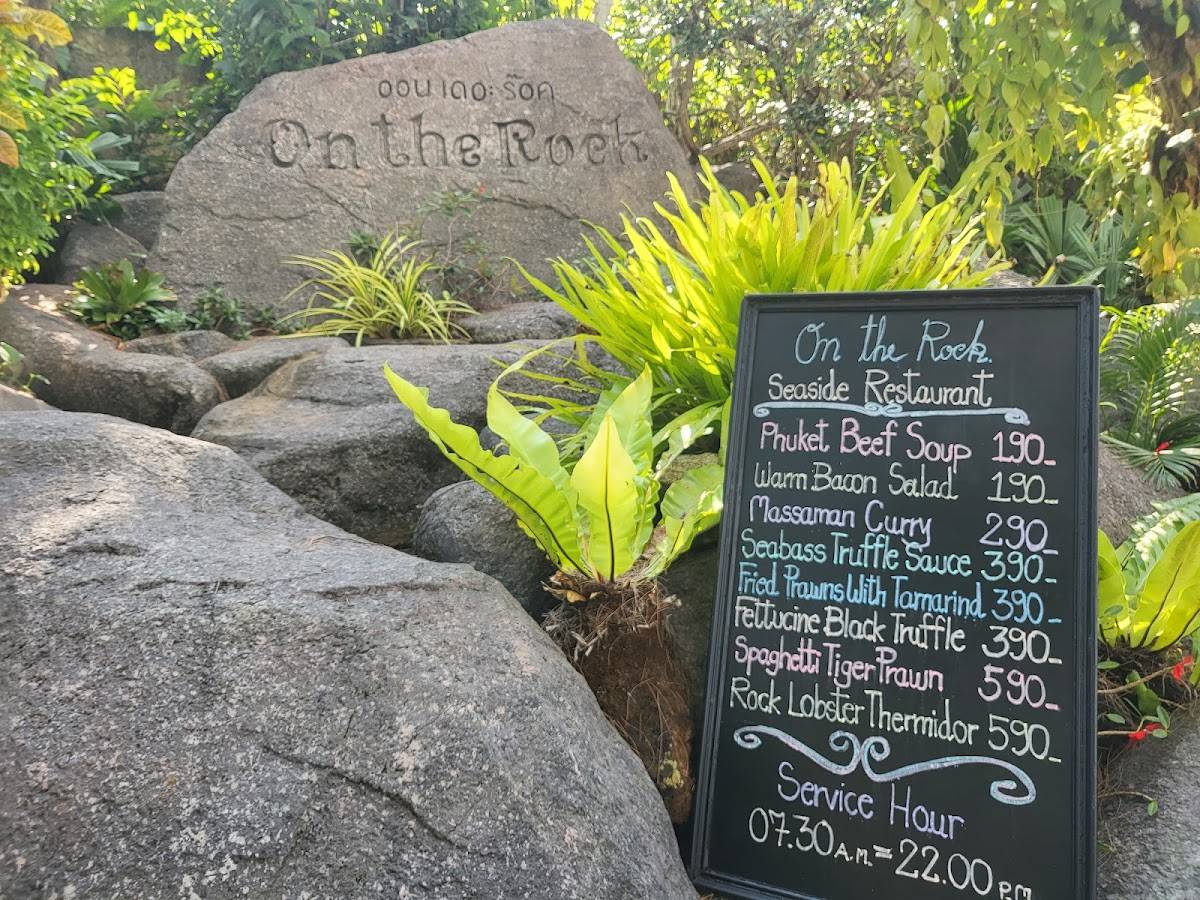 ออน เดอะ ร๊อค
On the Rock
On the Rock.
Seaside Restaurant
Phuket Beef Soup 190_
Warm Bacon Salad 190_
Massaman Curry 290_
Seabass Truffle Sauce 390_
Fried Prawns With Tamarind 390_
Fettucine Black Truffle 390_
Spaghetti Tiger Prawn 590_
Rock Lobster Thermidor 590_
Service Hour
07.30 A.M. = 22.00 P.M